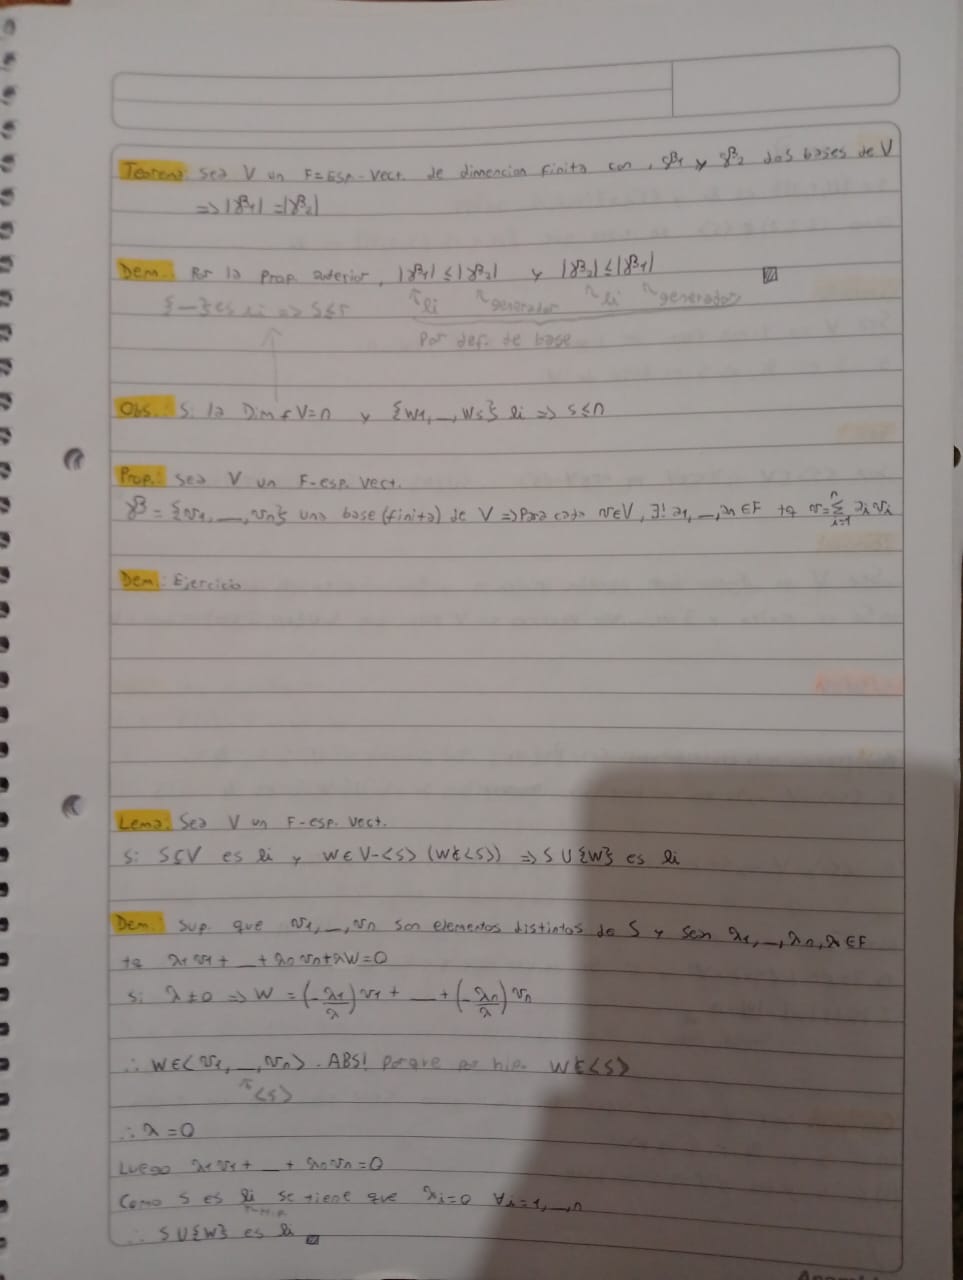 Teorema: Sea V un F-Esp. Vect. de dimencion finita con, β1 y β2 dos bases de V
=> |β1| = |β2|
Dem.: Por la Prop. anterior, |β1| ≤ |β2| y |β2| ≤ |β1|
{—} es li => s≤r li generador li generador
Por def. de base
Obs.: Si la Dim F V=n y {w1,_,ws} li => s≤n
Prop.: Sea V un F-esp. Vect.
β = {v1,__,vn} una base (finita) de V => Para cada v∈V, ∃! a1,_,an ∈F tq v=∑ i=1 n ai vi
Dem.: Ejercicio
Lema: Sea V un F-esp. Vect.
Si S⊆V es li y w∈V-<S> (w∉<S>) => S∪{w} es li
Dem: Sup. que v1,_,vn son elementos distintos de S y sean λ1,_,λn,λ∈F
tq λ1v1+__+λnvn+λw=0
Si λ≠0 => w = (-λ1/λ)v1+__+(-λn/λ)vn
∴ w∈<v1,_,vn>. ABS! Porque por hip. w∉<S>
<S>
∴ λ=0
Luego λ1v1+__+λnvn=0
Como S es li se tiene que λi=0 ∀i=1,_,n
∴ S∪{w} es li